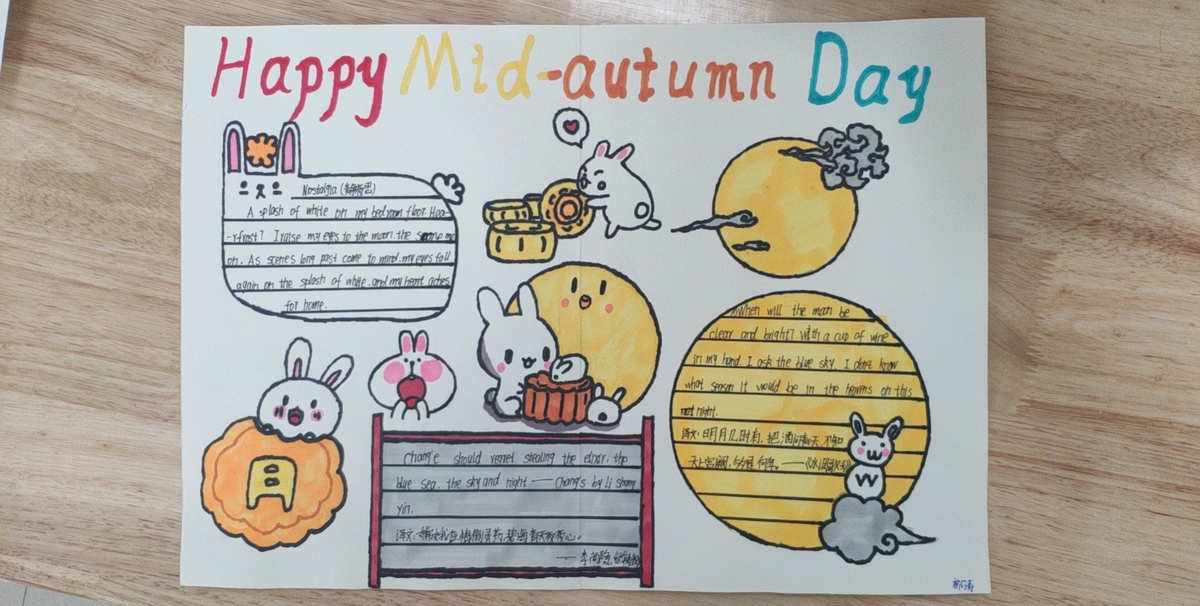 Happy Mid-autumn Day
Nostalgia (静夜思)
A splash of white on my bedroom floor. Hoa-
-rfrost? I raise my eyes to the moon. the same mo
on. As scenes long past come to mind. my eyes fall
again on the splash of white. and my heart aches
for home.
When will the moon be
clear and bright? With a cup of wine
in my hand. I ask the blue sky. I don't know
what season it would be in the heavens on this
night.
译文: 明月几时有, 把酒问青天, 不知
天上宫阙, 今夕是何年。——
月
Chang'e should regret stealing the elixir. the
blue sea. the sky and night —— Chang's by Li shang
yin.
译文: 嫦娥应悔偷灵药, 碧海青天夜夜心。
—— 李商隐